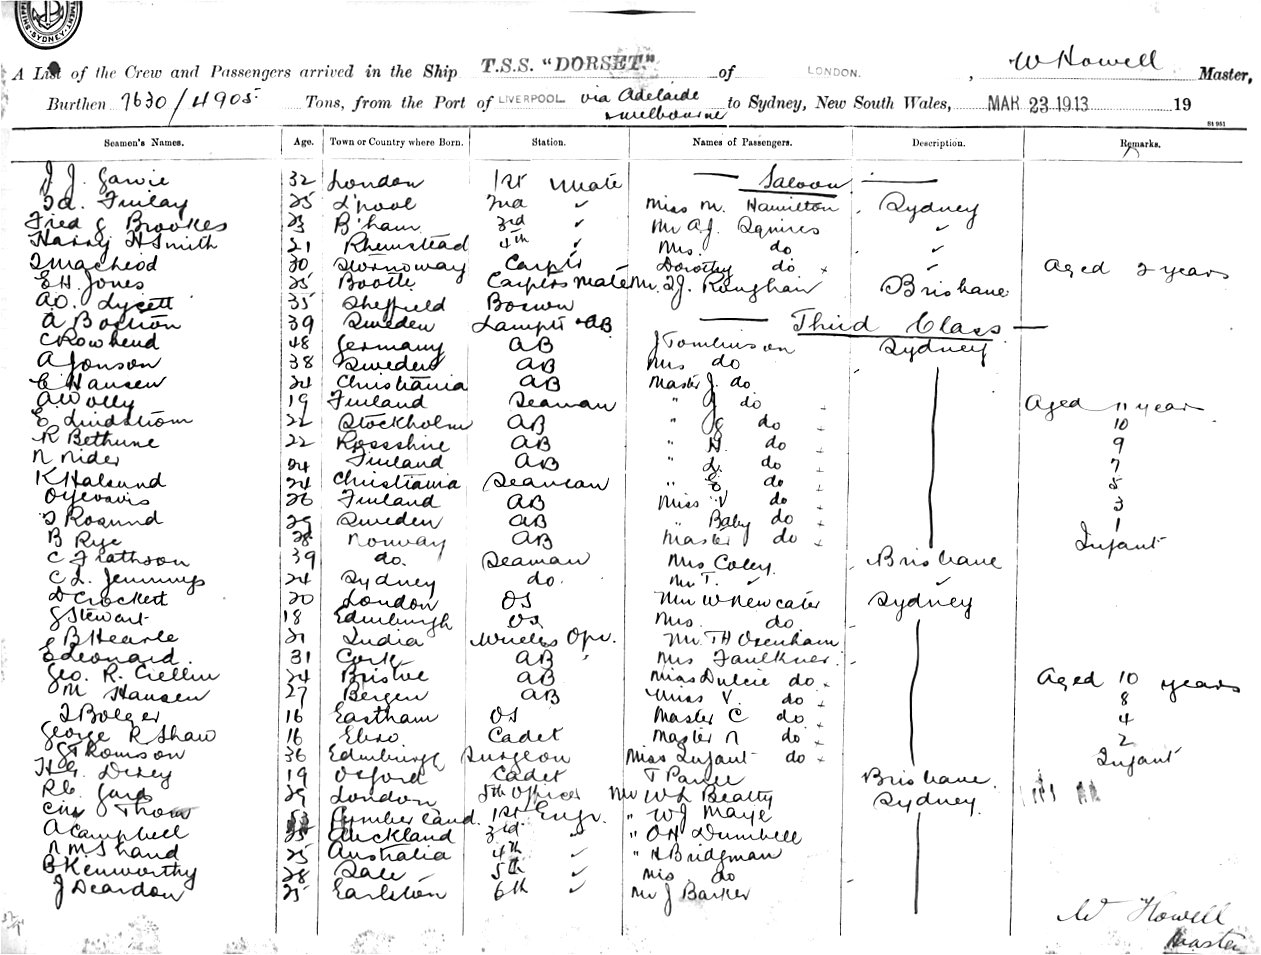 SYDNEY
A List of the Crew and Passengers arrived in the Ship T.S.S. "DORSET" of LONDON. , W Howell Master,
Burthen 7630/4905 Tons, from the Port of LIVERPOOL via Adelaide & Melbourne to Sydney, New South Wales, MAR 23 1913 19
St 951
Seamen's Names. Age. Town or Country where Born. Station. Names of Passengers. Description. Remarks.
J. J. Gavie 32 London 1st Mate Saloon
Finlay 25 L'pool 2nd ✓ Miss M. Hamilton Sydney
Fred G Brookes 23 B'ham 3rd ✓ Mr A J. Squires ✓
Harry H Smith 21 Rhemstead 4th ✓ Mrs. do ✓
Macleod 30 Stornoway Carptr Dorothy do ✓ Aged 2 years
E H. Jones 25 Bootle Carptrs Mate Mr. J. Roughan Brisbane
Lycett 35 Sheffield Boswn
A Bostron 39 Sweden Lamptr & AB Third Class
C Rowhend 48 Germany AB J Tomlinson Sydney
A Jonson 38 Sweden AB Mrs do
C Hansen 24 Christiania AB Master J. do
A Wolly 19 Finland Seaman " J do Aged 11 years
E Lindstrom 22 Stockholm AB " G do 10
R Bethune 22 Rossshire AB " H do 9
N Nider 24 Finland AB " L. do 7
K Halsund 24 Christiania Seaman " E do 5
26 Finland AB Miss V do 3
Rosund 29 Sweden AB " Baby do 1
B Rye 28 Norway AB Master do Infant
C Frathson 39 do. Seaman Mrs Coley Brisbane
C L. Jennings 24 Sydney do. Mr T. ✓ ✓
D Crockett 20 London OS Mr W Newcater Sydney
G Stewart 18 Edinburgh OS Mrs. do
E B Hearle 21 India Wireless Opr. Mr. T H Oxenham
E Leonard 31 Cork AB Mrs Faulkner
Geo. R. Crellin 24 Bristol AB Miss Dulcie do Aged 10 years
M Hansen 27 Bergen AB Miss V. do 8
Bolger 16 Eastham OS Master C do 4
George R Shaw 16 Cadet Master N do 2
G Thomson 36 Edinburgh Surgeon Miss Infant do Infant
H G. Direy 19 Oxford Cadet T Parle Brisbane
29 London 5th Officer Mr W L Beatty Sydney
Thom 53 Cumberland. 1st Engr. " W J Maye
A Campbell 25 Auckland 3rd " " O H Dumbell
N M Shand 25 Australia 4th ✓ " H Bridgman
B Kenworthy 28 Sale 5th ✓ Mrs do
J Deardon 25 Earlston 6th ✓ Mr J Barker
W Howell
Master